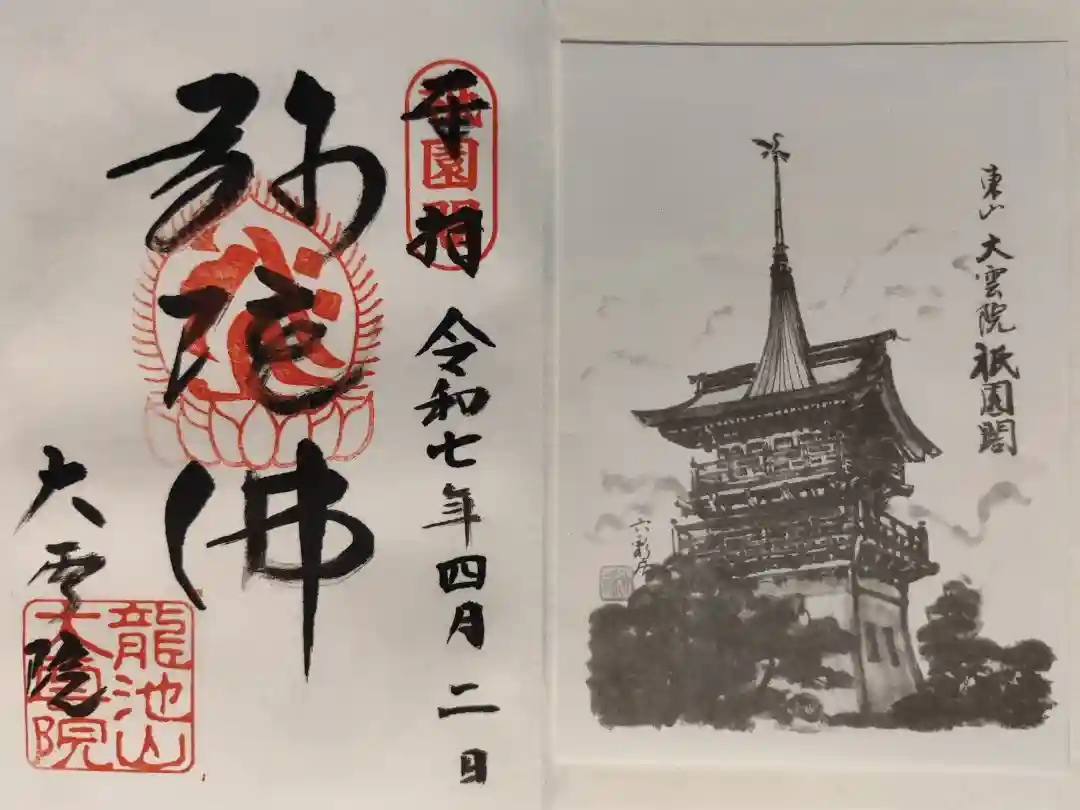 奉拝 令和七年四月二日
祇園閣
弥陀佛
大雲院
龍池山
大雲院
東山 大雲院 祇園閣